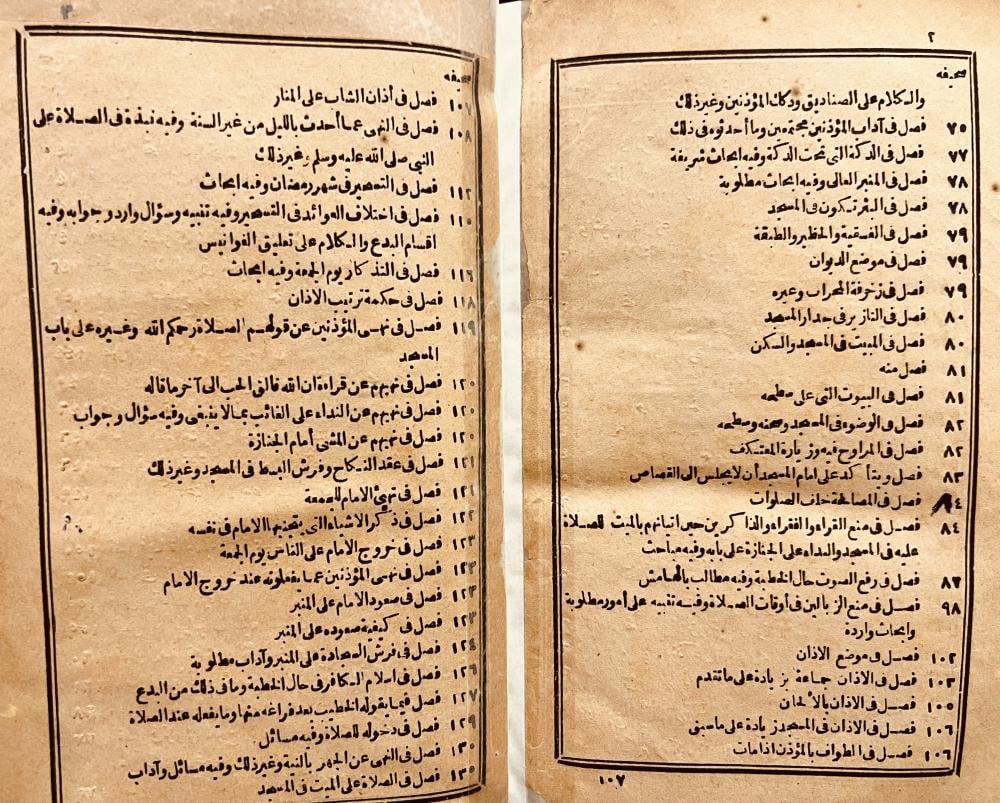 ٢
صحيفه
والكلام على الصناديق ودكك المؤذنين وغير ذلك
٧٥ فصل فى آداب المؤذنين مجتمعين وما أحدثوه فى ذلك
٧٧ فصل فى الدكة التى تحت الدكة وفيه ابحاث شريفة
٧٨ فصل فى المنبر العالى وفيه ابحاث مطلوبة
٧٨ فصل فى البئر تكون فى المسجد
٧٩ فصل فى الفسقية والحظير والطبقة
٧٩ فصل فى موضع الديوان
٧٩ فصل فى زخرفة المحراب وغيره
٨٠ فصل فى التازير فى جدار المسجد
٨٠ فصل فى المبيت فى المسجد والسكن
٨١ فصل منه
٨١ فصل فى البيوت التى على سطحه
٨٢ فصل فى الوضوء فى المسجد وصحنه وسطحه
٨٢ فصل فى المراوح فيه وزيارة المعتكف
٨٣ فصل ويتأكد على امام المسجد أن لا يجلس الى القصاص
٨٤ فصل فى المصافحة خلف الصلوات
٨٤ فصل فى منع القراء والفقراء والذاكرين حين اتيانهم بالميت للصلاة
عليه فى المسجد والنداء على الجنازة على بابه وفيه مباحث
٨٧ فصل فى رفع الصوت حال الخطبة وفيه مطالب بالهامش
٩٨ فصل فى منع الزبالين فى أوقات الصلاة وفيه تنبيه على أمور مطلوبة
وابحاث واردة
١٠٢ فصل فى موضع الاذان
١٠٣ فصل فى الاذان جماعة بزيادة على ما تقدم
١٠٥ فصل فى الاذان بالألحان
١٠٦ فصل فى الاذان فى المسجد زيادة على ما سبق
١٠٦ فصل فى الطواف بالمؤذن اذا مات
١٠٧
صحيفه
١٠٧ فصل فى أذان الشاب على المنار
١٠٨ فصل فى النهى عما أحدث بالليل من غير السنة وفيه نبذة فى الصلاة على
النبى صلى الله عليه وسلم وغير ذلك
١١٢ فصل فى التسحير فى شهر رمضان وفيه ابحاث
١١٥ فصل فى اختلاف العوائد فى التسحير وفيه تنبيه وسؤال وارد وجوابه وفيه
اقسام البدع والكلام على تعليق الفوانيس
١١٦ فصل فى التذكار يوم الجمعة وفيه ابحاث
١١٨ فصل فى حكمة ترتيب الاذان
١١٩ فصل فى نهى المؤذنين عن قولهم الصلاة رحمكم الله وغيره على باب
المسجد
١٢٠ فصل فى نهيهم عن قراءة ان الله فالق الحب الى آخر ما قاله
١٢٠ فصل فى نهيهم عن النداء على الغائب بما لا ينبغى وفيه سؤال وجواب
١٢٠ فصل فى نهيهم عن المشى أمام الجنازة
١٢١ فصل فى عقد النكاح وفرش البسط فى المسجد وغير ذلك
١٢١ فصل فى تهيئ الامام للجمعة
١٢٢ فصل فى ذكر الاشياء التى يتجنبها الامام فى نفسه
١٢٣ فصل فى خروج الامام على الناس يوم الجمعة
١٢٣ فصل فى نهى المؤذنين عما يفعلونه عند خروج الامام
١٢٣ فصل فى صعود الامام على المنبر
١٢٣ فصل فى كيفية صعوده على المنبر
١٢٤ فصل فى فرش السجادة على المنبر وآداب مطلوبة
١٢٦ فصل فى اسلام الكافر فى حال الخطبة وما فى ذلك من البدع
١٢٧ فصل فيما يقوله الخطيب بعد فراغه منها وما يفعله عند الصلاة
١٢٩ فصل فى دخوله للصلاة وفيه مسائل
١٣٠ فصل فى النهى عن الجهر بالنية وغير ذلك وفيه مسائل وآداب
١٣٥ فصل فى الصلاة على الميت فى المسجد